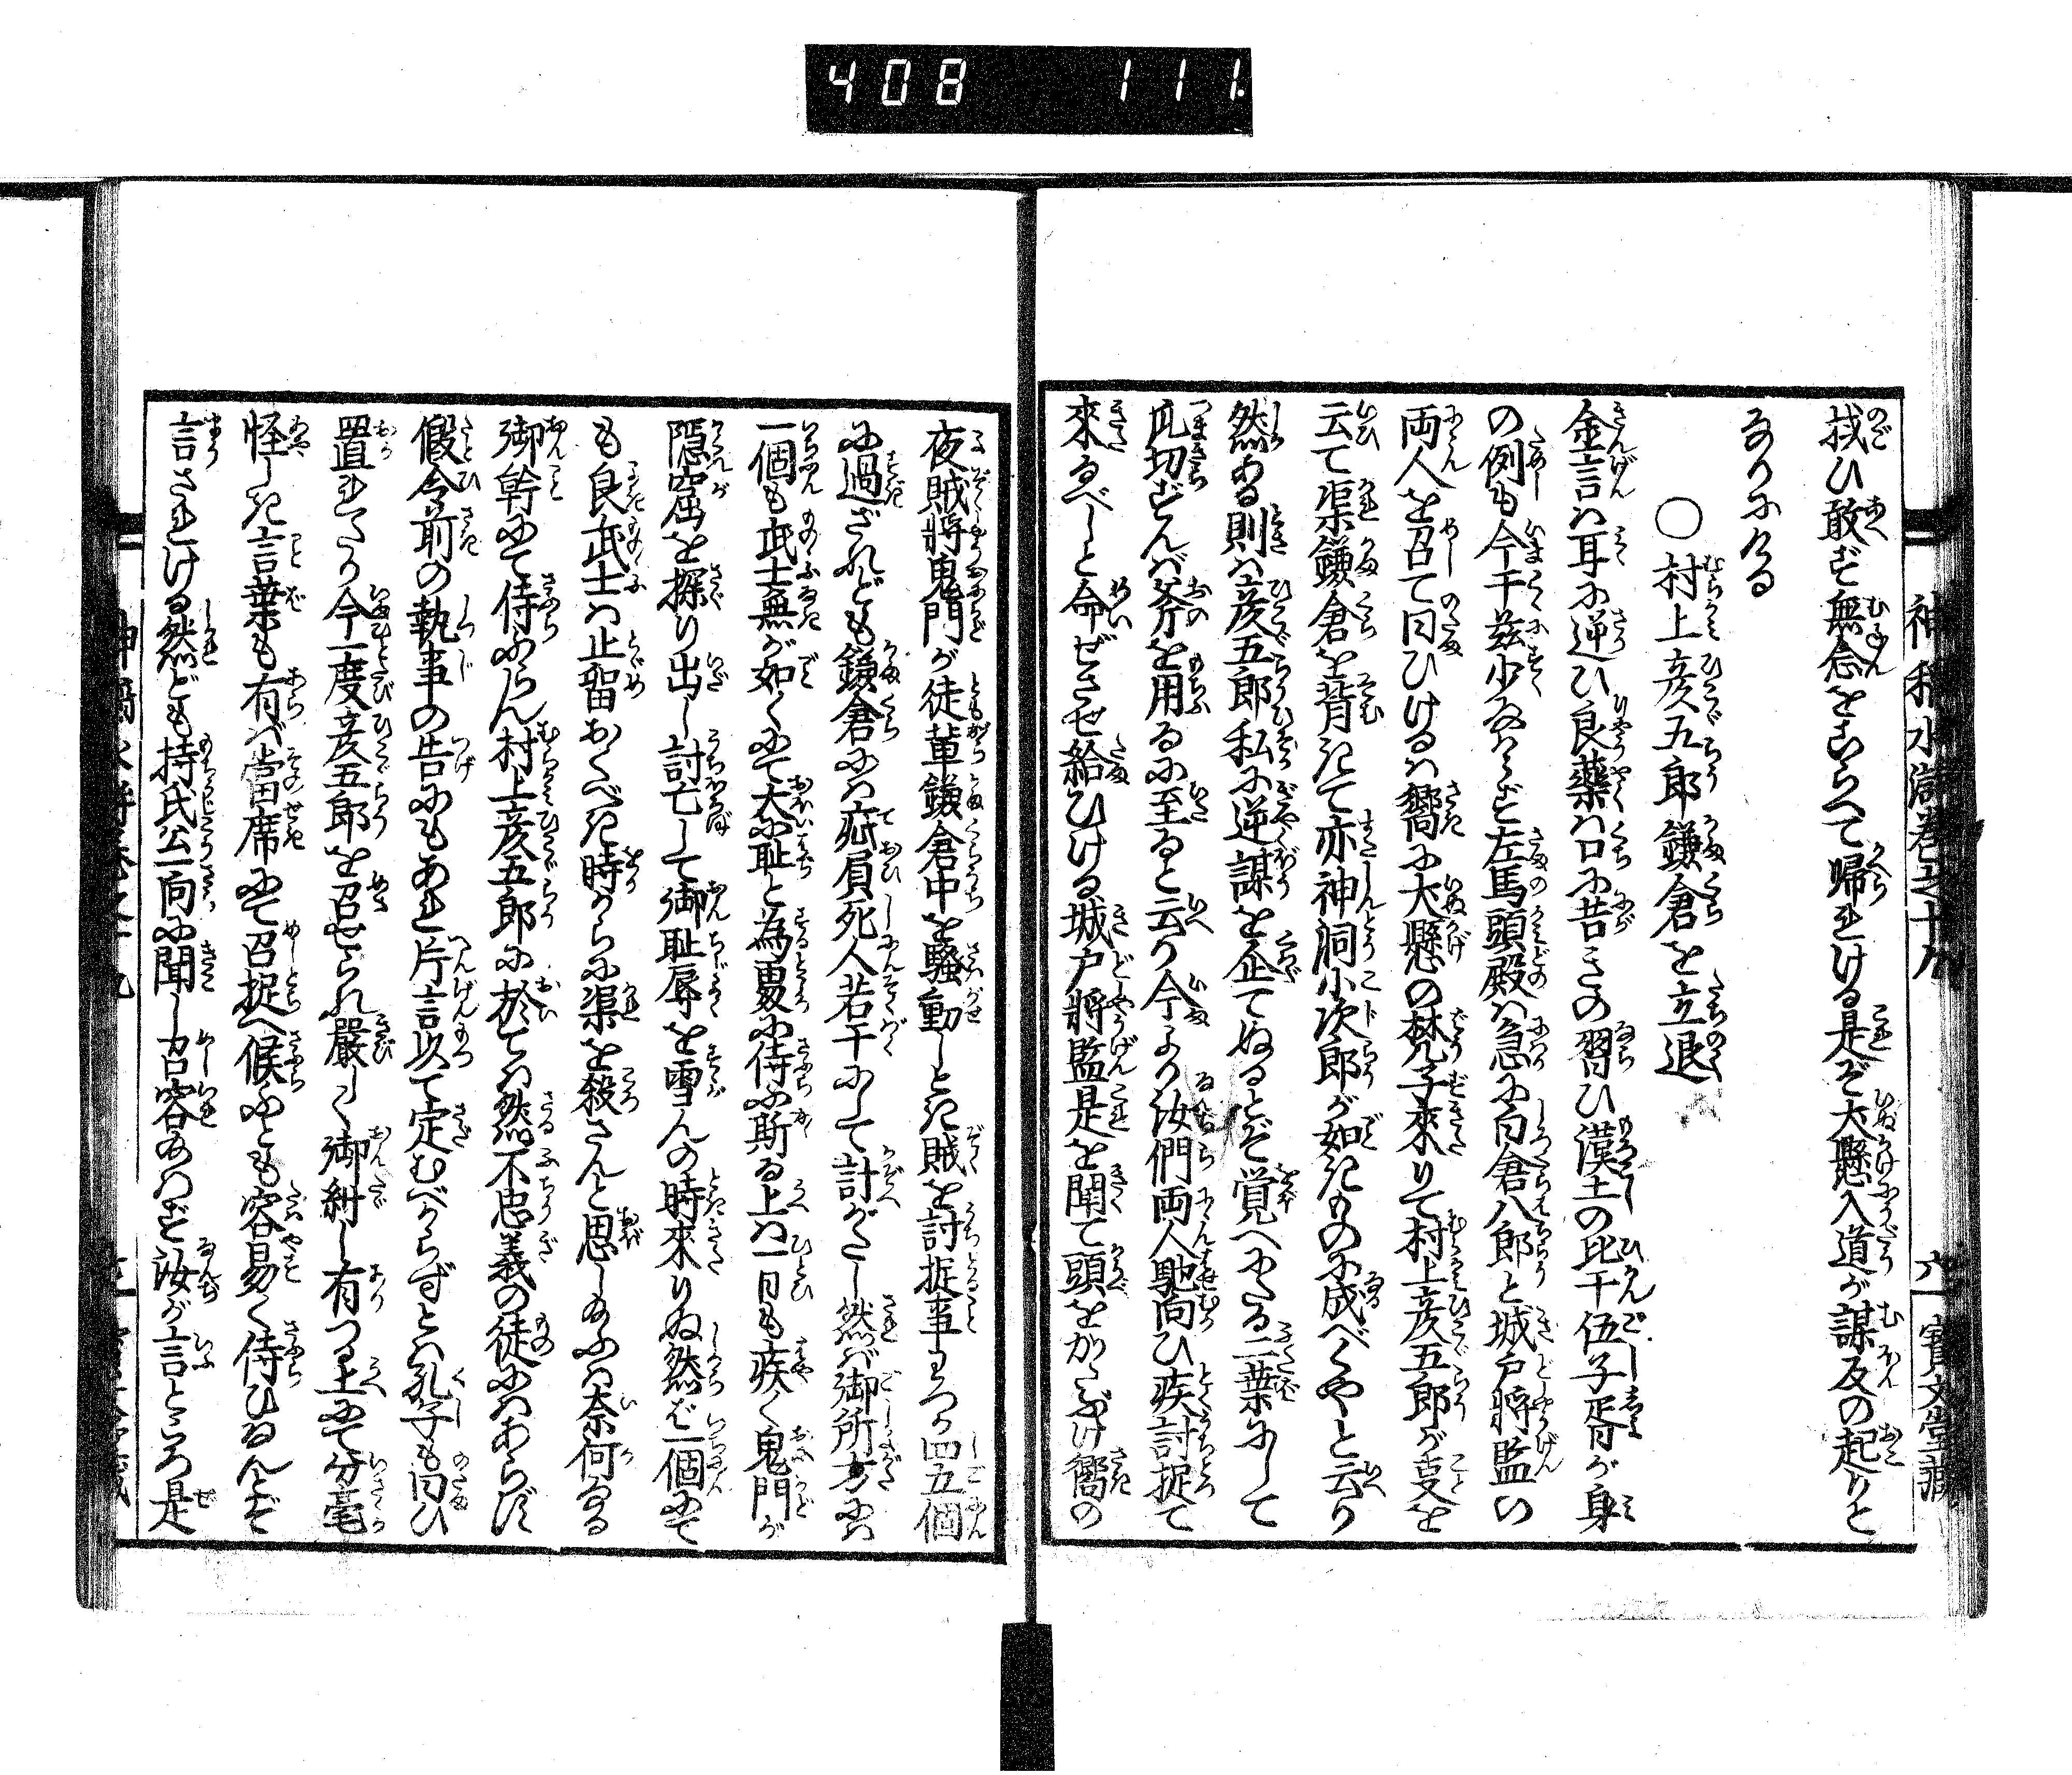 408 111.
神稲水滸巻之十九 六 寳文堂藏
拭ひ敢ず無念をこらへて帰られける是ぞ犬懸入道が謀反の起りと
なりにける
○村上彦五郎鎌倉を立退
金言ハ耳に逆ひ良薬ハ口に苦きの習ひ漢土の比干伍子胥が身
の例も今干茲少なからず左馬頭殿ハ急に白倉八郎と城戸将監の
両人を召て曰ひけるハ嚮に犬懸の禁子來りて村上彦五郎が叓を
云て渠鎌倉を背きて亦神洞小次郎が如きものに成べくやと云り
然ある則ハ彦五郎私に逆謀を企てぬるとぞ覚へにたる二葉にして
爪切ずんバ斧を用るに至ると云り今より汝們両人馳向ひ疾討捉て
來るべしと命ぜさせ給ひける城戸將監是を聞て頭をかたぶけ嚮の
夜賊將鬼門が徒軰鎌倉中を騒動しとき賊を討捉事わづか四五個
に過ざれども鎌倉にハ疵負死人若干にして計がたし然バ御所方にハ
一個も武士無が如くにて大に恥と為処に侍ふ斯る上ハ一日も疾く鬼門が
隠窟を探り出し討亡して御恥辱を雪んの時來りぬ然ば一個にて
も良武士ハ止畄おくべき時からに渠を殺さんと思し給ふハ奈何なる
御幹にて侍ふらん村上彦五郎に於てハ然不忠義の徒にハあらじ
假令前の執事の告にもあれ片言以て定むべからずとハ孔子も曰ひ
置れたり今一度彦五郎を召せられ嚴しく御糾し有つる上にて分毫
怪しき言葉も有バ當席にて召捉へ候ふとも容易く侍ひなんとぞ
言されける然ども持氏公一向に聞し召容あハず汝が言ところ是